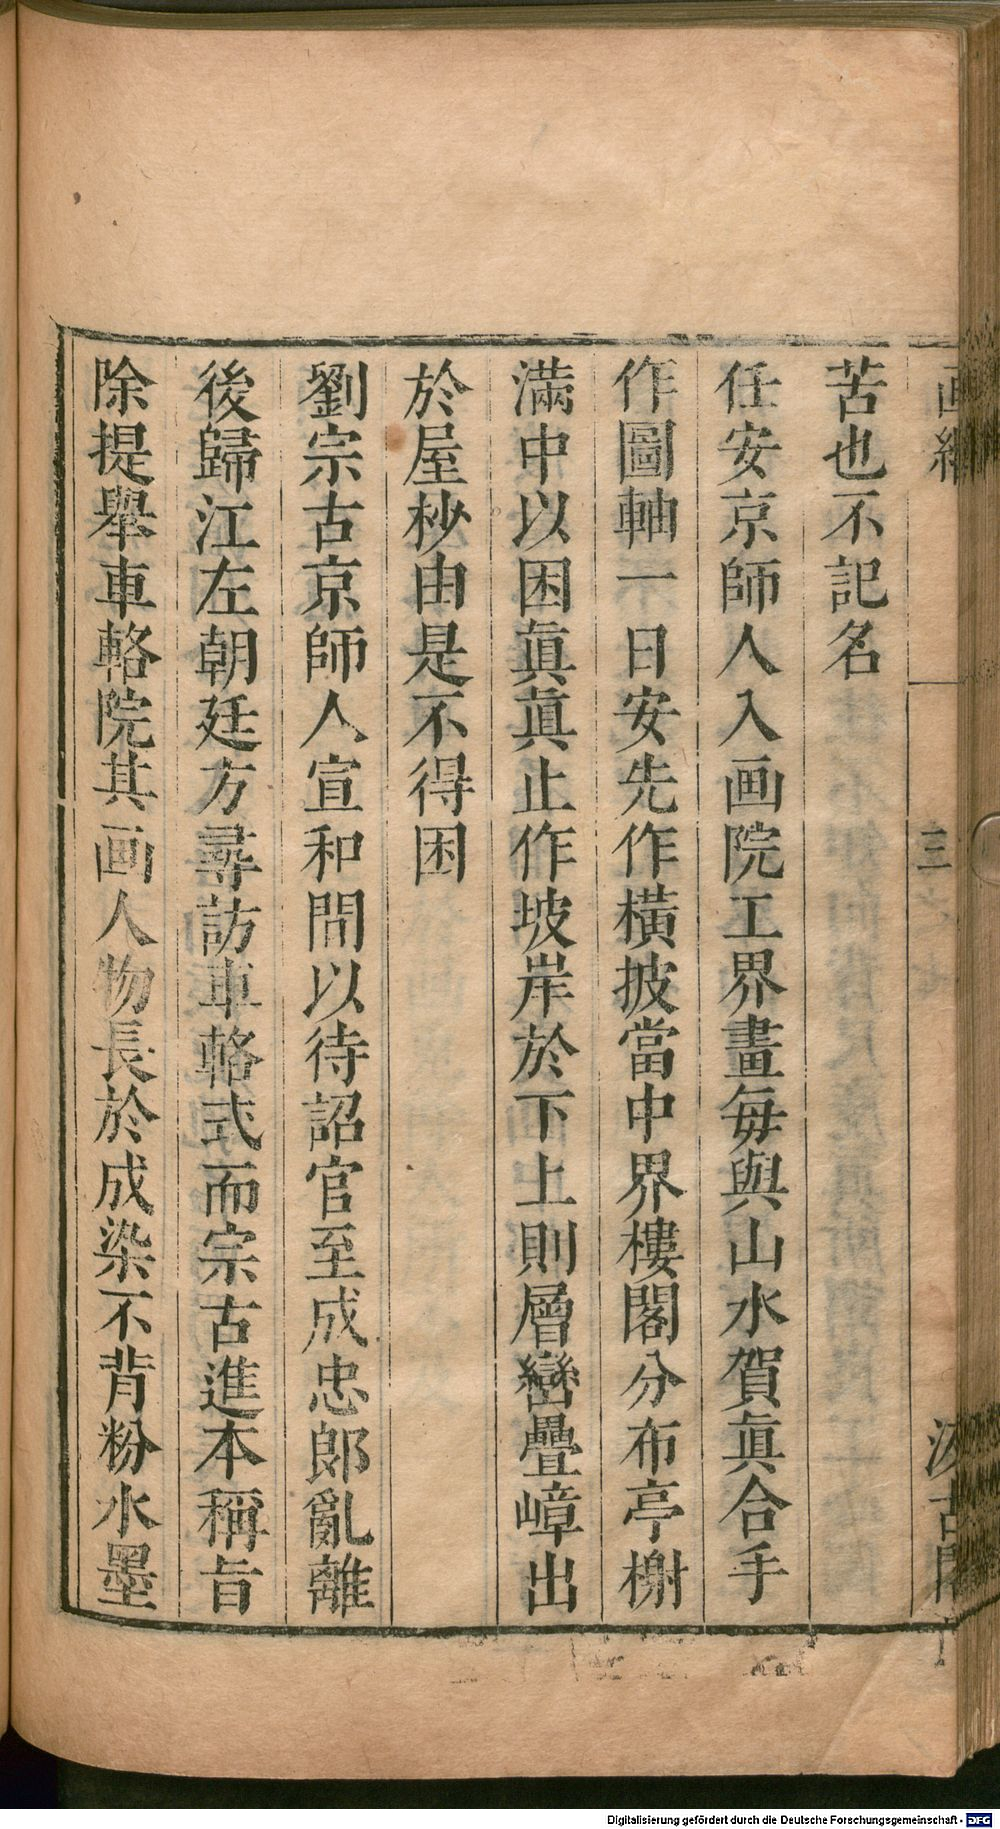 苦也不記名
任安京師人入画院工界畫每與山水賀眞合手
作圖軸一日安先作橫披當中界樓閣分布亭榭
滿中以困眞眞止作坡岸於下上則層巒疊嶂出
於屋杪由是不得困
劉宗古京師人宣和間以待詔官至成忠郎亂離
後歸江左朝廷方尋訪車輅式而宗古進本稱旨
除提舉車輅院其画人物長於成染不背粉水墨
三
汲古閣
Digitalisierung gefördert durch die Deutsche Forschungsgemeinschaft - DFG